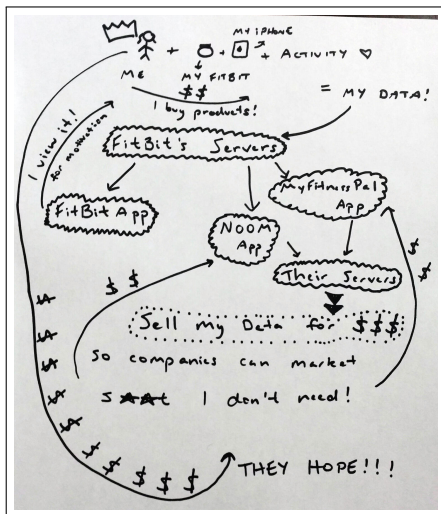 MY iPHONE
+ + + ACTIVITY ♡
ME
MY FITBIT
$$
I buy products!
= MY DATA!
I view it!
for motivation
FitBit's Servers
FitBit App
MyFitnessPal
App
NOOM
App
Their Servers
$ $
$ $
Sell my Data for $$$
So companies can market
I don't need!
$ $ $ $ $ $ $ $ $ $
THEY HOPE!!!